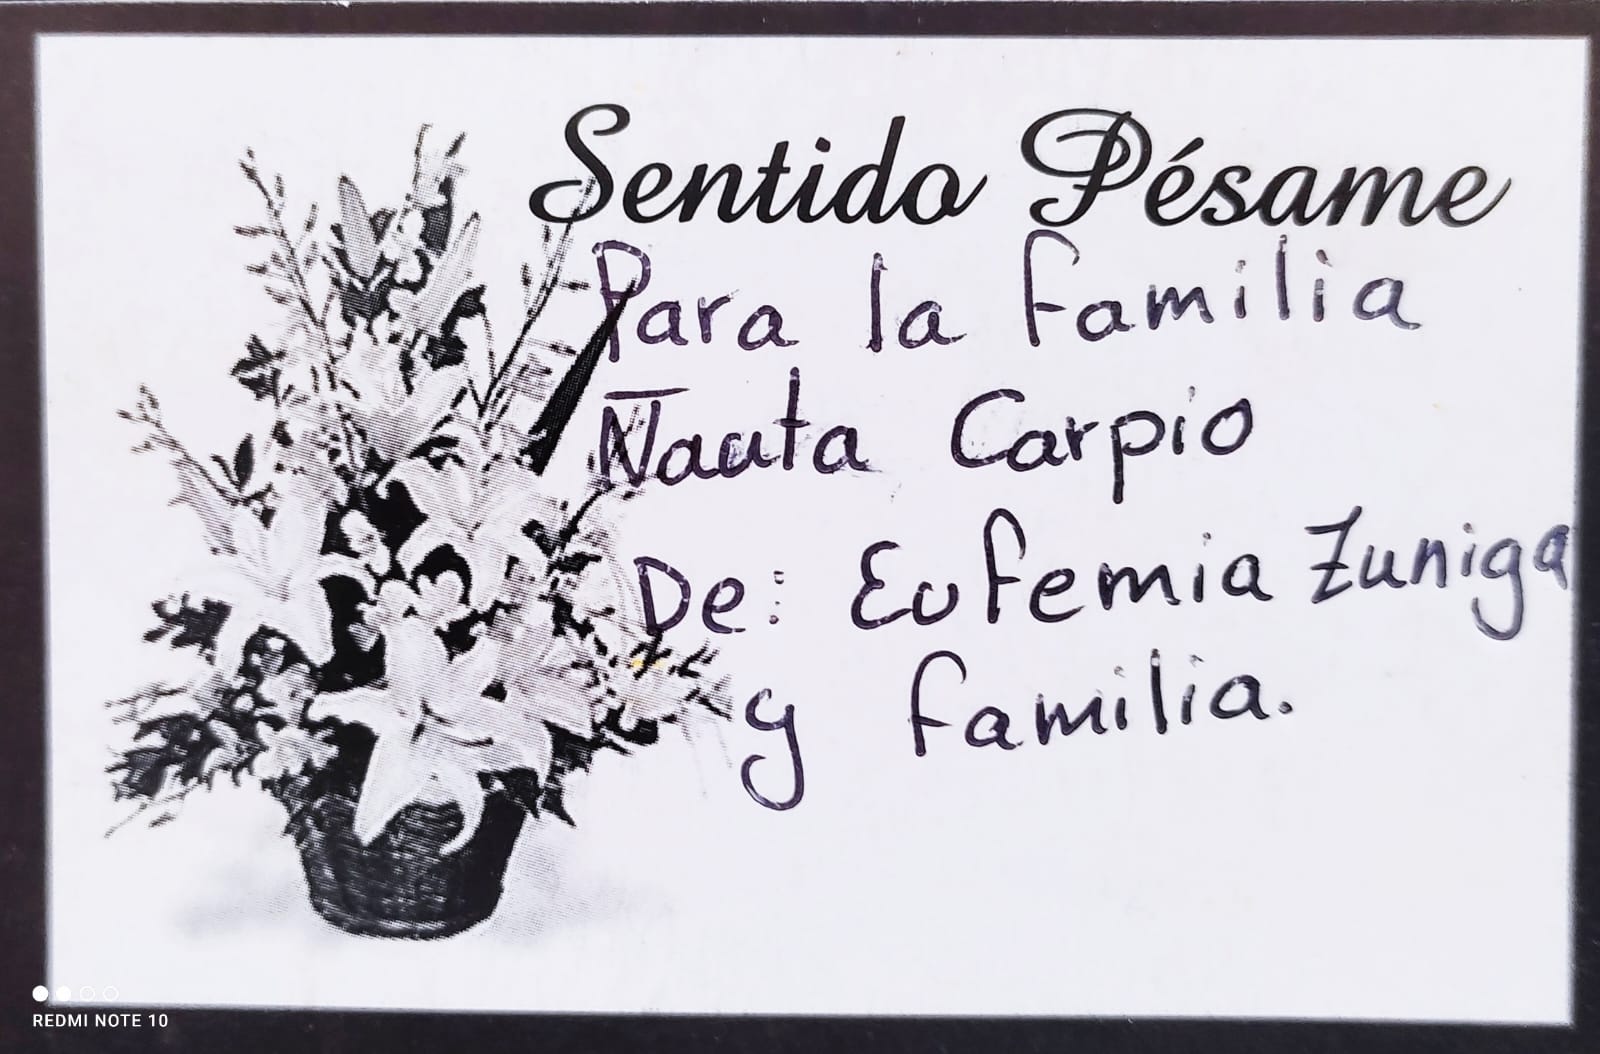 Sentido Pésame
Para la familia
Ñauta Carpio
De: Eufemia Zuniga
y familia.
REDMI NOTE 10